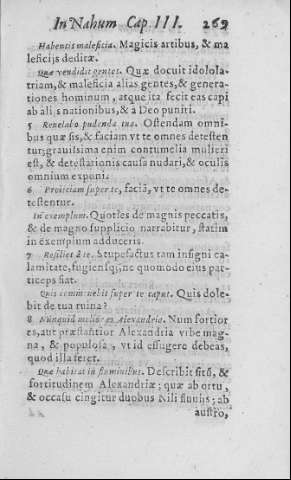 In Nahum Cap. III. 269
Habentis maleficia. Magicis artibus, & ma
leficijs deditæ.
Quæ vendidit gentes. Quæ docuit idolola-
triam, & maleficia alias gentes, & genera-
tiones hominum, atque ita fecit eas capi
ab alijs nationibus, & à Deo puniri.
5 Reuelabo pudenda tua. Ostendam omni-
bus quæ sis, & faciam vt te omnes detesten
tur, grauissima enim contumelia mulieri
est, & detestationis causa nudari, & oculis
omnium exponi.
6 Proijciam super te, faciã, vt te omnes de-
testentur.
In exemplum. Quoties de magnis peccatis,
& de magno supplicio narrabitur, statim
in exemplum adduceris.
7 Resiliet à te. Stupefactus tam insigni ca-
lamitate, fugiensq́; ne quomodo eius par-
ticeps fiat.
Quis commouebit super te caput. Quis dole-
bit de tua ruina?
8 Nunquid melior es Alexandria. Num fortior
es, aut præstantior Alexandria vrbe mag-
na, & populosa, vt id effugere debeas,
quod illa feret.
Quæ habitat in fluminibus. Describit sitũ, &
fortitudinem Alexandriæ; quæ ab ortu,
& occasu cingitur duobus Nili fluuijs; ab
austro,